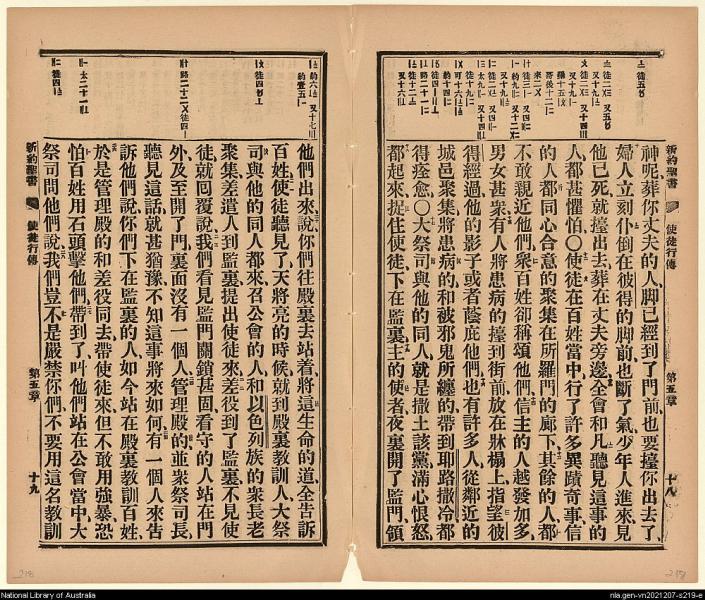 新約聖書
使徒行傳
第五章
十八
神呢葬你丈夫的人脚已經到了門前也要擡你出去了
婦人立刻仆倒在彼得的脚前也斷了氣少年人進來見
他已死就擡出去葬在丈夫旁邊全會和凡聽見這事的
人都甚懼怕〇使徒在百姓當中行了許多異蹟奇事信
的人都同心合意的聚集在所羅門的廊下其餘的人都
不敢親近他們衆百姓卻稱頌他們信主的人越發加多
男女甚衆有人將患病的擡到街前放在牀榻上指望彼
得經過他的影子或者蔭庇他們也有許多人從鄰近的
城邑聚集將患病的和被邪鬼所纏的帶到耶路撒冷都
得痊愈〇大祭司與他的同人就是撒土該黨滿心恨怒
都起來捉住使徒下在監裏主的使者夜裏開了監門領
他們出來說你們往殿裏去站着將這生命的道全告訴
百姓使徒聽見了天將亮的時候就到殿裏教訓人大祭
司與他的同人都來召公會的人和以色列族的衆長老
聚集差遣人到監裏提出使徒來差役到了監裏不見使
徒就回覆說我們看見監門關鎖甚固看守的人站在門
外及至開了門裏面沒有一個人管理殿的並衆祭司長
聽見這話就甚猶豫不知這事將來如何有一個人來告
訴他們說你們下在監裏的人如今站在殿裏教訓百姓
於是管理殿的和差役同去帶使徒來但不敢用強暴恐
怕百姓用石頭擊他們帶到了叫他們站在公會當中大
祭司問他們說我們豈不是嚴禁你們不要用這名教訓
新約聖書
使徒行傳
第五章
十九
218
National Library of Australia
nla.gen-vn2021207-s219-e